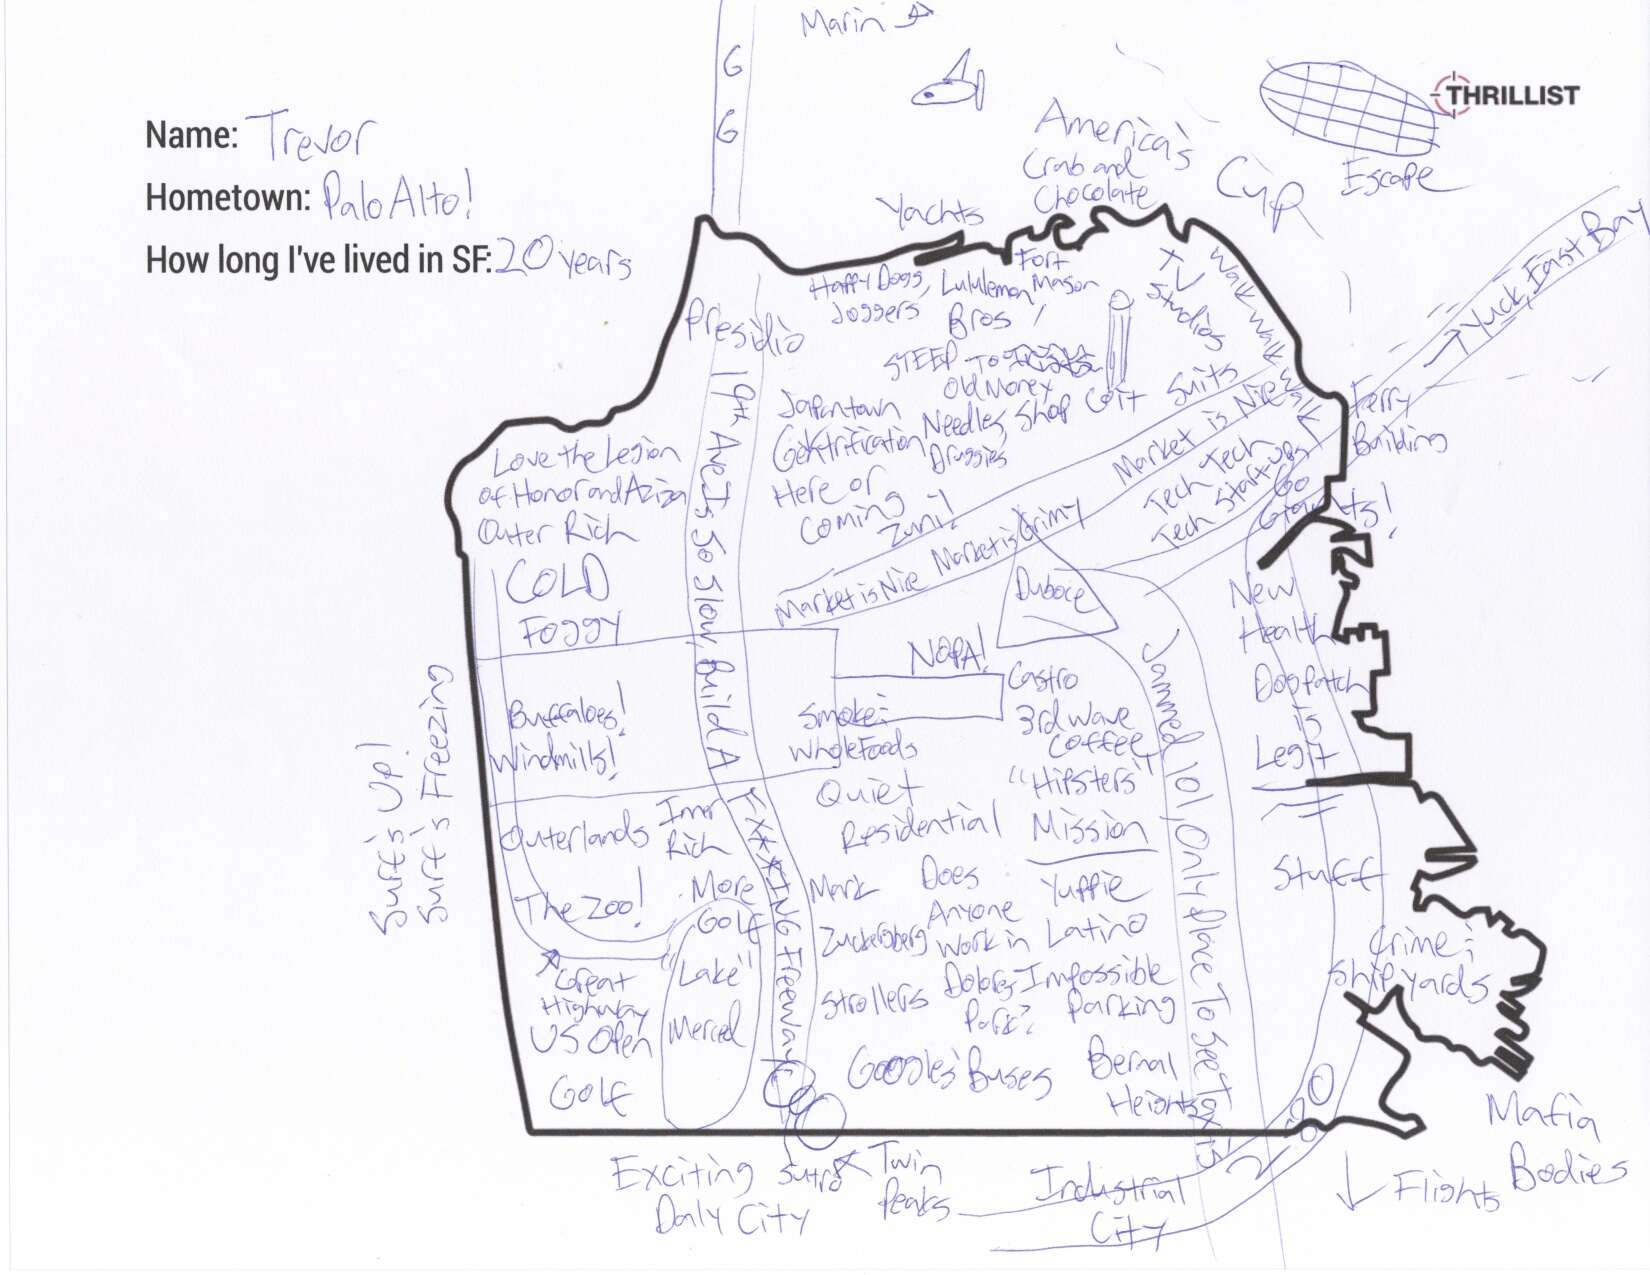 Marin
G
G
THRILLIST
Name: Trevor
Hometown: Palo Alto!
How long I've lived in SF: 20 years
America's
Cup
Crab and
Chocolate
Yachts
Escape
Yuck, East Bay
Fort
Mason
Happy Dogs,
Joggers
Lululemon
Bros
TV
Studios
Walk Walk Walk
Presidio
STEEP TO
Old Money
Coit
Suits
Japantown
Gentrification
Here or
Coming
Needles, Shop
Druggies
Zuni!
Ferry
Building
Market is Nice Market is Grimy Market is Nice
Tech Tech
Tech Startups
Go
Giants!
Love the Legion
of Honor and Aziza
Outer Rich
COLD
FOGGY
19th Ave Is So Slow, Build A FXXXING Freeway
Duboce
NOPA!
New
Health
Dogpatch
is
Legit
Castro
3rd Wave
Coffee
"Hipsters"
Mission
Jammed 101, Only Place To See Taxis
Buffaloes!
Windmills!
Smoke:
Whole Foods
Quiet
Residential
Surf's Up!
Surf's Freezing
Outerlands
Innr
Rich
The Zoo!
More
Golf
Mark
Zuckerberg
Strollers
Does
Anyone
Work in
Dolores
Park?
Yuppie
Latino
Impossible
Parking
Stuff
Crime:
Shipyards
Great
Highway
US Open
Golf
"Lake"
Merced
Google's Buses
Bernal
Heights
280
Mafia
Bodies
Exciting
Daly City
Sutro
Twin
Peaks
Industrial
City
Flights